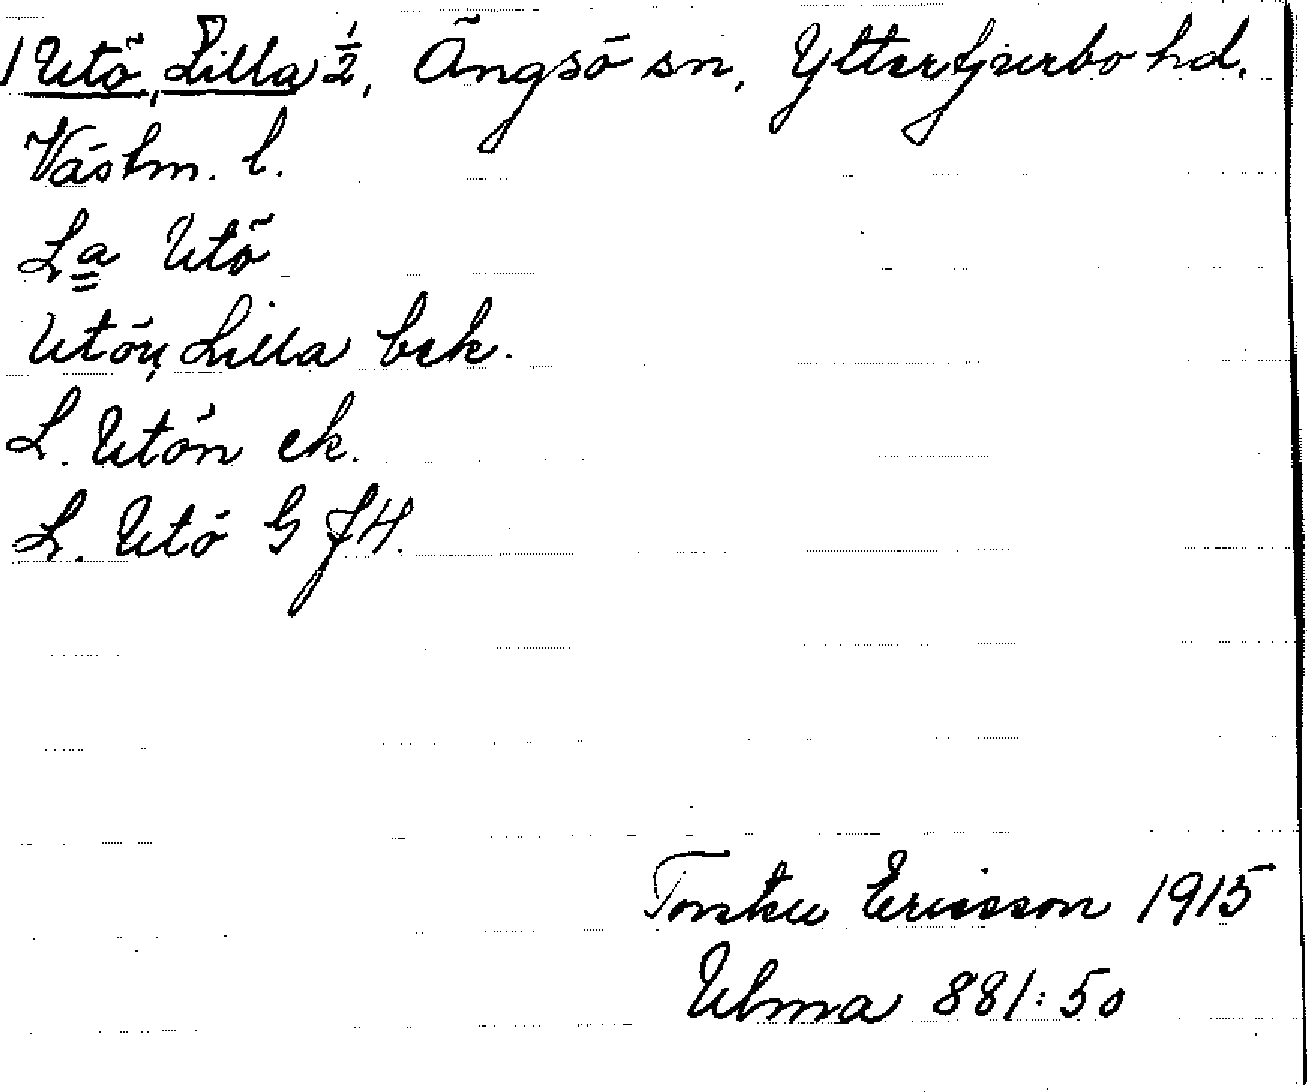 1 Utö, Lilla 1/2, Ängsö sn, Yttertjurbo hd.
Västm. l.
La Utö
Utön, Lilla bek.
L. Utön ek.
L. Utö G f H.
Torsten Ericsson 1915
Ulma 881:50